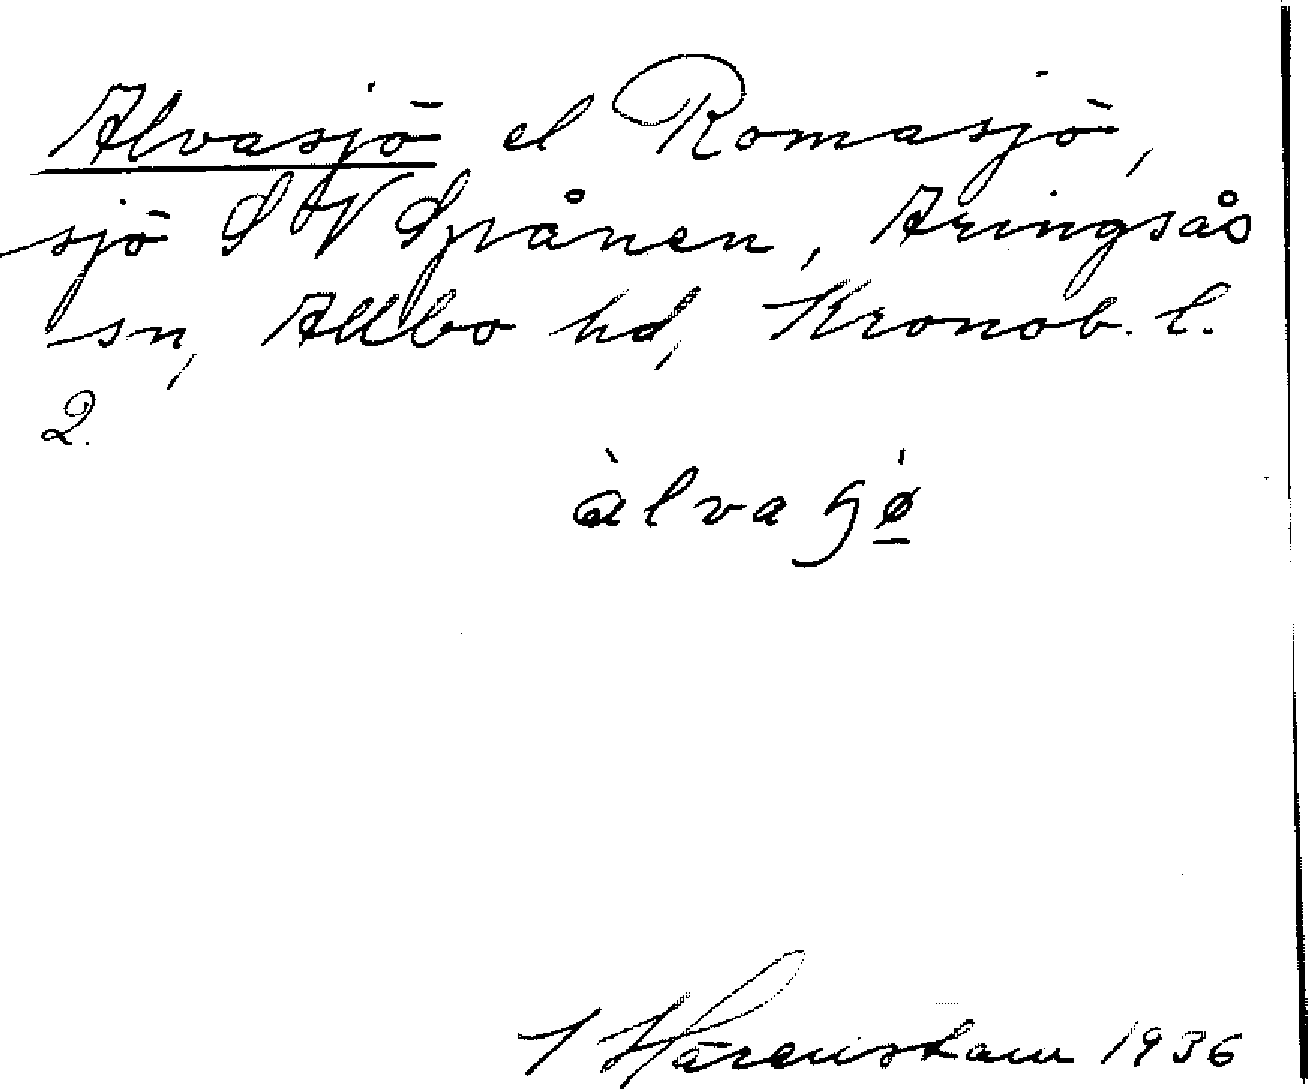 Alvasjö el Romasjö,
sjö SV Spånen, Aringsås
sn, Allbo hd, Kronob. l.
2.
àlvaɧø̲̇
Härenstam 1936